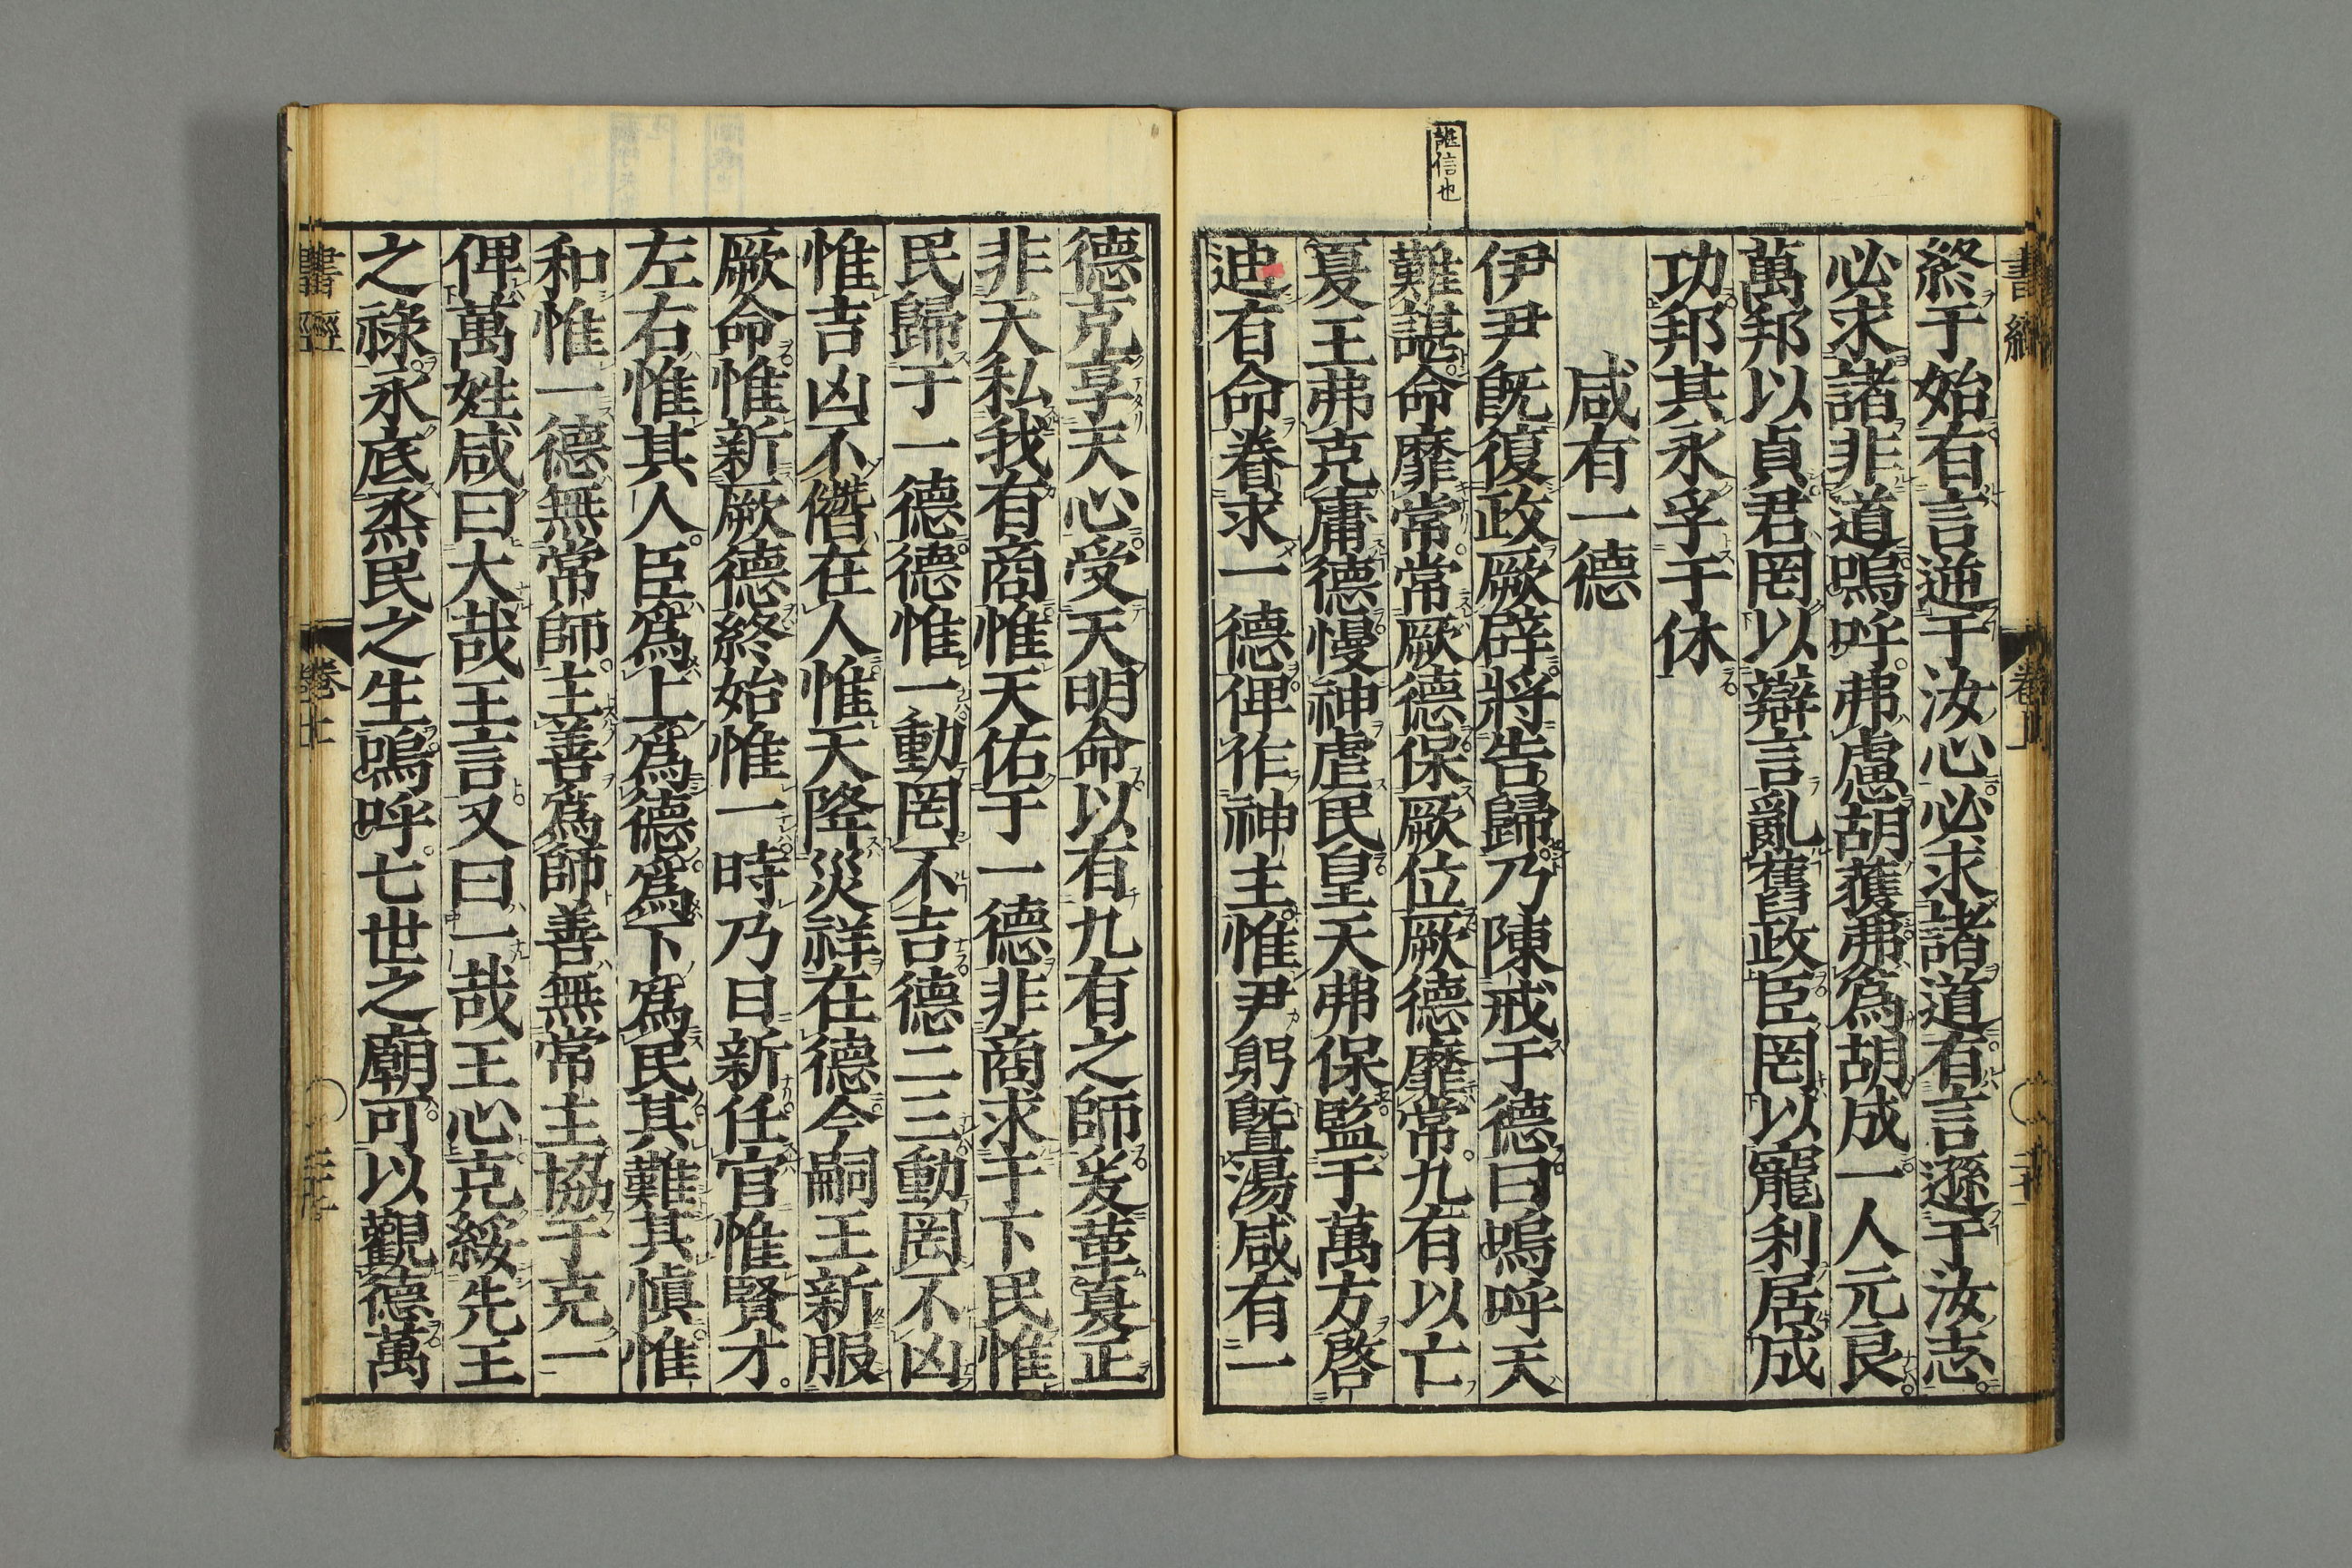 諶信也
終于始有言逆于汝心必求諸道有言遜于汝志
必求諸非道嗚呼弗慮胡獲弗爲胡成一人元良
萬邦以貞君罔以辯言亂舊政臣罔以寵利居成
功邦其永孚于休
咸有一德
伊尹既復政厥辟將告歸乃陳戒于德曰嗚呼天
難諶命靡常常厥德保厥位厥德靡常九有以亡
夏王弗克庸德慢神虐民皇天弗保監于萬方啓
迪有命眷求一德俾作神主惟尹躬曁湯咸有一
德克享天心受天明命以有九有之師爰革夏正
非天私我有商惟天佑于一德非商求于下民惟
民歸于一德德惟一動罔不吉德二三動罔不凶
惟吉凶不僭在人惟天降災祥在德今嗣王新服
厥命惟新厥德終始惟一時乃日新任官惟賢才
左右惟其人臣爲上爲德爲下爲民其難其愼惟
和惟一德無常師主善爲師善無常主協于克一
俾萬姓咸曰大哉王言又曰一哉王心克綏先王
之祿永底烝民之生嗚呼七世之廟可以觀德萬
書經